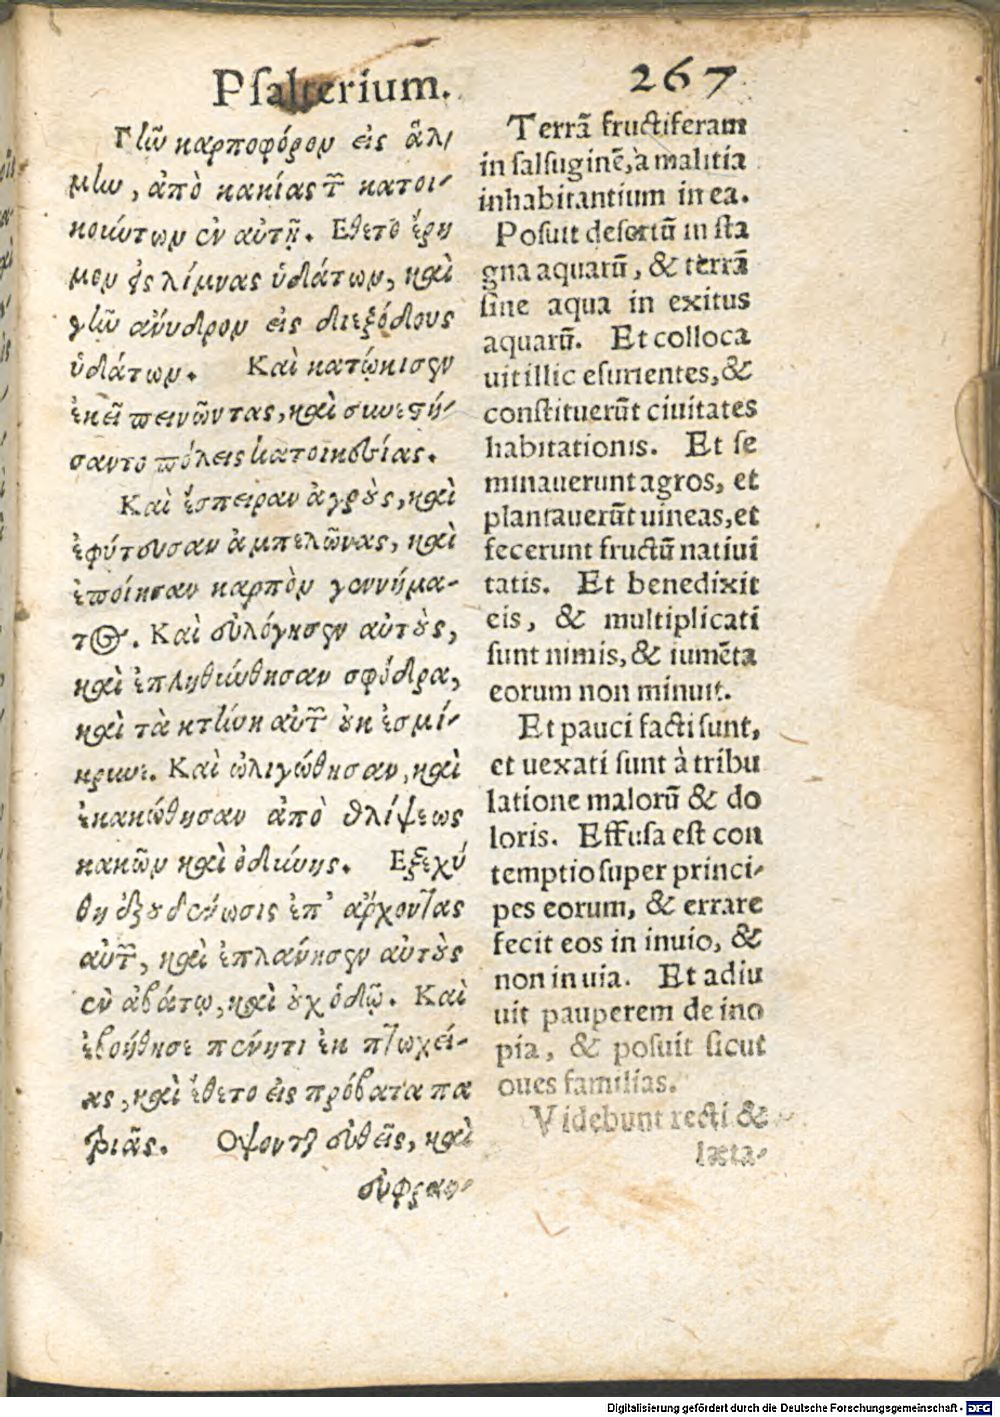 Psalterium. 267
Γῆν καρποφόρον εἰς ἅλ-
μην, ἀπὸ κακίας τῶν κατοι-
κούντων ἐν αὐτῇ. Εθετο ἔρη
μον εἰς λίμνας ὑδάτων, καὶ
γῆν ἄνυδρον εἰς διεξόδους
ὑδάτων. Καὶ κατῴκισεν
ἐκεῖ πεινῶντας, καὶ συνεστή-
σαντο πόλεις κατοικεσίας.
Καὶ ἔσπειραν ἀγροὺς, καὶ
ἐφύτευσαν ἀμπελῶνας, καὶ
ἐποίησαν καρπὸν γεννήμα-
τος. Καὶ εὐλόγησεν αὐτοὺς,
καὶ ἐπληθύνθησαν σφόδρα,
καὶ τὰ κτήνη αὐτῶν οὐκ ἐσμί-
κρυνε. Καὶ ὠλιγώθησαν, καὶ
ἐκακώθησαν ἀπὸ θλίψεως
κακῶν καὶ ὀδύνης. Εξεχύ
θη ἐξουδένωσις ἐπ' ἄρχοντας
αὐτῶν, καὶ ἐπλάνησεν αὐτοὺς
ἐν ἀβάτῳ, καὶ οὐχ ὁδῷ. Καὶ
ἐβοήθησε πένητι ἐκ πτωχεί-
ας, καὶ ἔθετο εἰς πρόβατα πα
τριᾶς. Οψονται εὐθεῖς, καὶ
εὐφραν-
Terrã fructiferam
in salsuginẽ, à malitia
inhabitantium in ea.
Posuit desertũ in sta
gna aquarũ, & terrã
sine aqua in exitus
aquarũ. Et colloca
uit illic esurientes, &
constituerũt ciuitates
habitationis. Et se
minauerunt agros, et
plantauerũt uineas, et
fecerunt fructũ natiui
tatis. Et benedixit
eis, & multiplicati
sunt nimis, & iumẽta
eorum non minuit.
Et pauci facti sunt,
et uexati sunt à tribu
latione malorũ & do
loris. Effusa est con
temptio super princi-
pes eorum, & errare
fecit eos in inuio, &
non in uia. Et adiu
uit pauperem de ino
pia, & posuit sicut
oues familias.
Videbunt recti &
læta-
Digitalisierung gefördert durch die Deutsche Forschungsgemeinschaft - DFG